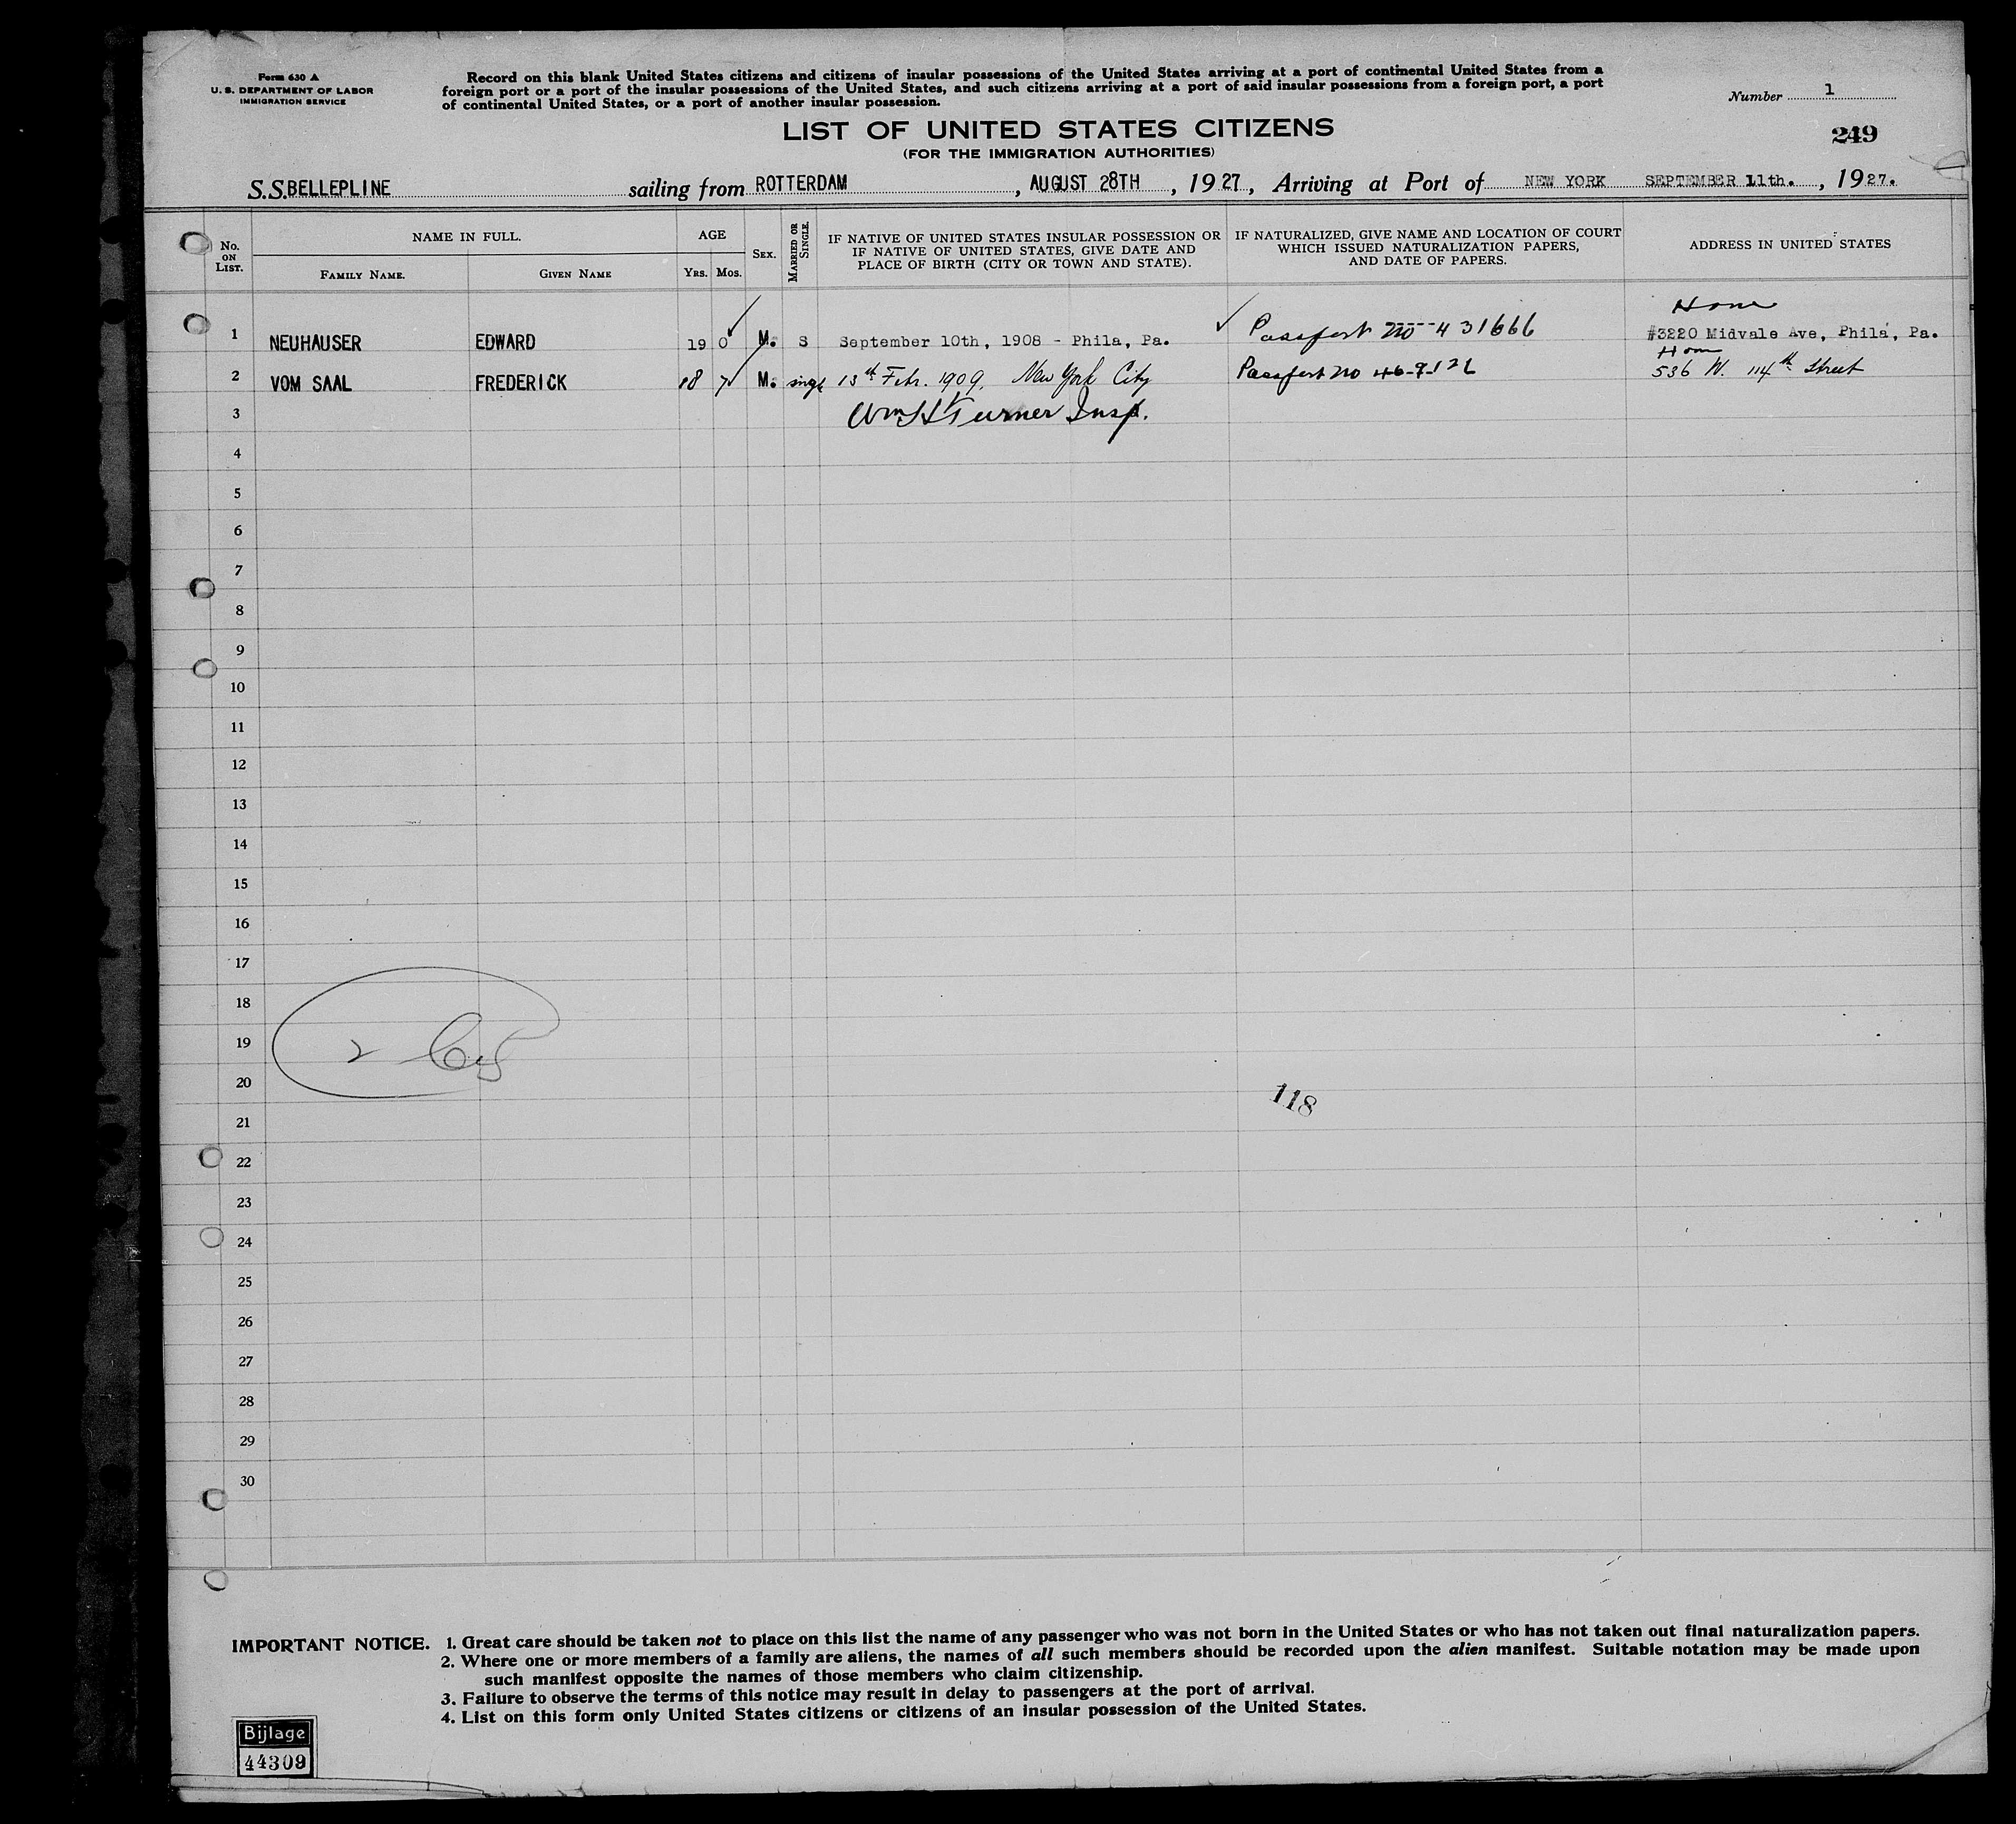 Form 630 A
U. S. DEPARTMENT OF LABOR
IMMIGRATION SERVICE
Record on this blank United States citizens and citizens of insular possessions of the United States arriving at a port of continental United States from a
foreign port or a port of the insular possessions of the United States, and such citizens arriving at a port of said insular possessions from a foreign port, a port
of continental United States, or a port of another insular possession.
Number 1
249
LIST OF UNITED STATES CITIZENS
(FOR THE IMMIGRATION AUTHORITIES)
S.S. BELLEPLINE sailing from ROTTERDAM, AUGUST 28TH, 1927, Arriving at Port of NEW YORK SEPTEMBER 11th., 1927.
No. ON LIST.
NAME IN FULL.
FAMILY NAME.
GIVEN NAME
AGE
YRS. MOS.
SEX.
MARRIED OR SINGLE.
IF NATIVE OF UNITED STATES INSULAR POSSESSION OR
IF NATIVE OF UNITED STATES, GIVE DATE AND
PLACE OF BIRTH (CITY OR TOWN AND STATE).
IF NATURALIZED, GIVE NAME AND LOCATION OF COURT
WHICH ISSUED NATURALIZATION PAPERS,
AND DATE OF PAPERS.
ADDRESS IN UNITED STATES
Home
1 NEUHAUSER EDWARD 19 0 M. S September 10th, 1908 - Phila, Pa. Passport no 431666 #3220 Midvale Ave, Phila, Pa.
Home
2 VOM SAAL FREDERICK 18 7 M. single 13th Febr. 1909. New York City Passport no 536 W. 114th Street
3 Wm H Turner Insp.
4
5
6
7
8
9
10
11
12
13
14
15
16
17
18
19
2
20
118
21
22
23
24
25
26
27
28
29
30
IMPORTANT NOTICE. 1. Great care should be taken not to place on this list the name of any passenger who was not born in the United States or who has not taken out final naturalization papers.
2. Where one or more members of a family are aliens, the names of all such members should be recorded upon the alien manifest. Suitable notation may be made upon
such manifest opposite the names of those members who claim citizenship.
3. Failure to observe the terms of this notice may result in delay to passengers at the port of arrival.
4. List on this form only United States citizens or citizens of an insular possession of the United States.
Bijlage
44309